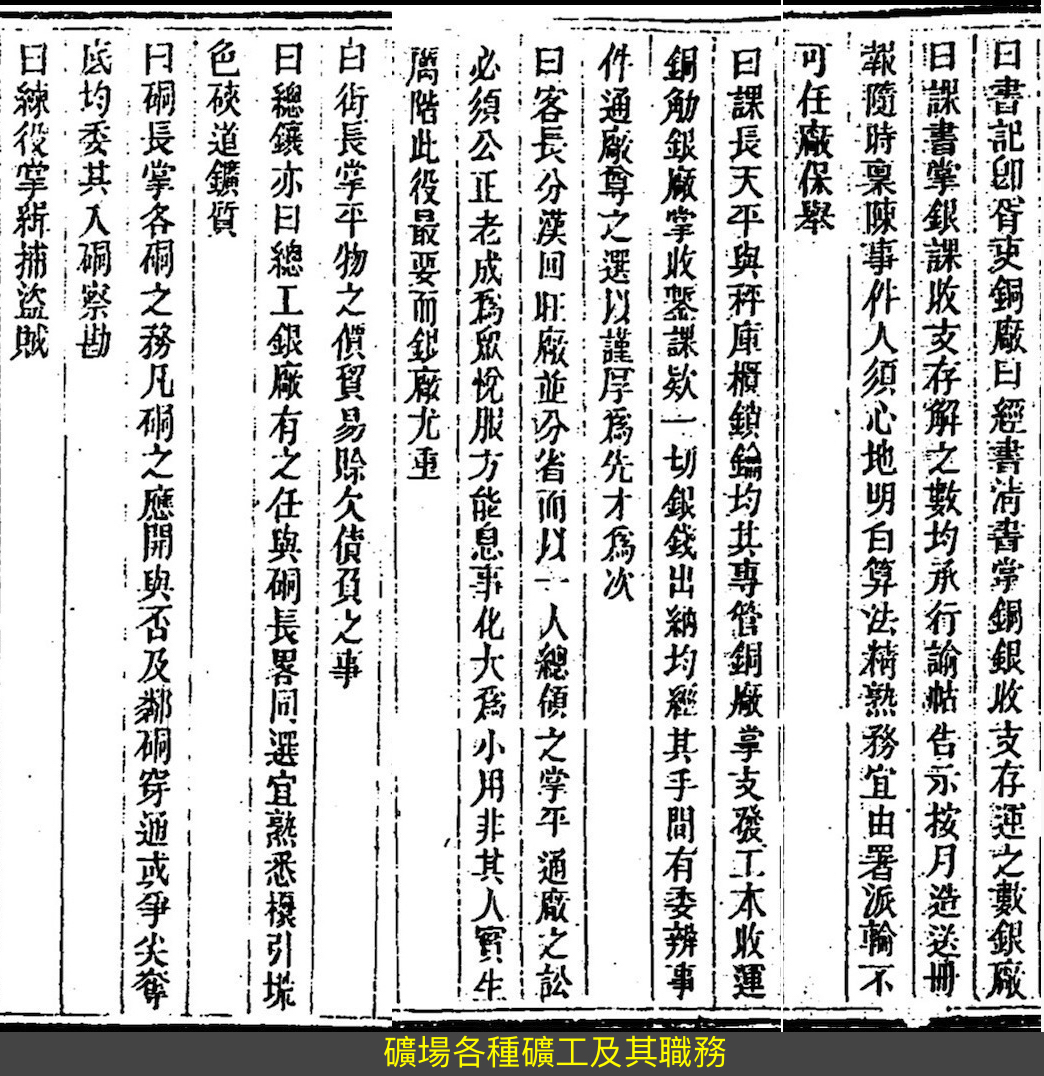 曰書記卽胥吏銅廠曰經書淸書掌銅銀收支存運之數銀廠
曰課書掌銀課收支存解之數均承行諭帖告示按月造送冊
報隨時稟陳事件人須心地明白算法精熟務宜由署派輪不
可任廠保舉
曰課長天平與秤庫櫃鎖鑰均其專管銅廠掌支發工本收運
銅觔銀廠掌收鏨課欵一切銀錢出納均經其手間有委辨事
件通廠尊之選以謹厚爲先才爲次
曰客長分漢回旺廠並分省而以一人總領之掌平通廠之訟
必須公正老成爲眾悅服方能息事化大爲小用非其人實生
厲階此役最要而銀廠尤重
曰街長掌平物之價貿易賒欠債負之事
曰總鑲亦曰總工銀廠有之任與硐長畧同選宜熟悉㯽引垙
色硤道鑛質
曰硐長掌各硐之務凡硐之應開與否及鄰硐穿通或爭尖奪
底均委其入硐察勘
曰練役掌緝捕盜賊
礦場各種礦工及其職務